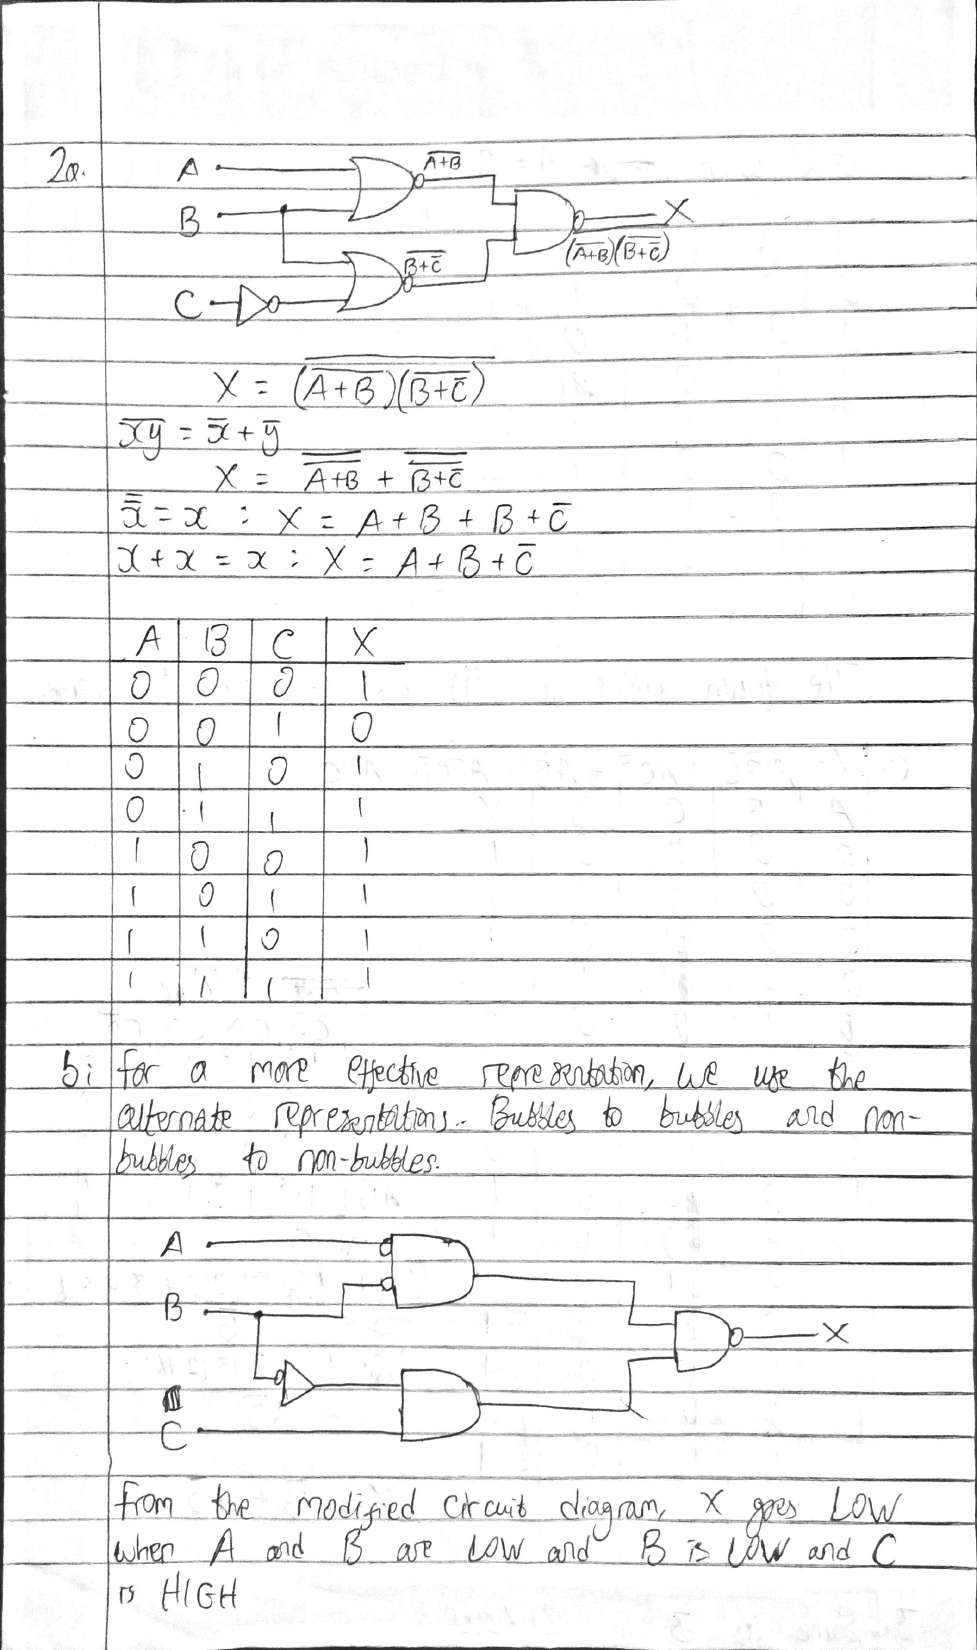 2a.
A
A̅+̅B̅
B
X
(A̅+̅B̅)(B̅+̅C̿)
B̅+̅C̿
C
X = \overline{(\overline{A+B})(\overline{B+\overline{C}})}
\overline{xy} = \overline{x} + \overline{y}
X = \overline{\overline{A+B}} + \overline{\overline{B+\overline{C}}}
\overline{\overline{x}} = x : X = A + B + B + \overline{C}
x + x = x : X = A + B + \overline{C}
A B C X
0 0 0 1
0 0 1 0
0 1 0 1
0 1 1 1
1 0 0 1
1 0 1 1
1 1 0 1
1 1 1 1
bi for a more effective representation, we use the
alternate representations. Bubbles to bubbles and non-
bubbles to non-bubbles.
A
B
X
C
from the modified circuit diagram, X goes LOW
when A and B are LOW and B is LOW and C
is HIGH